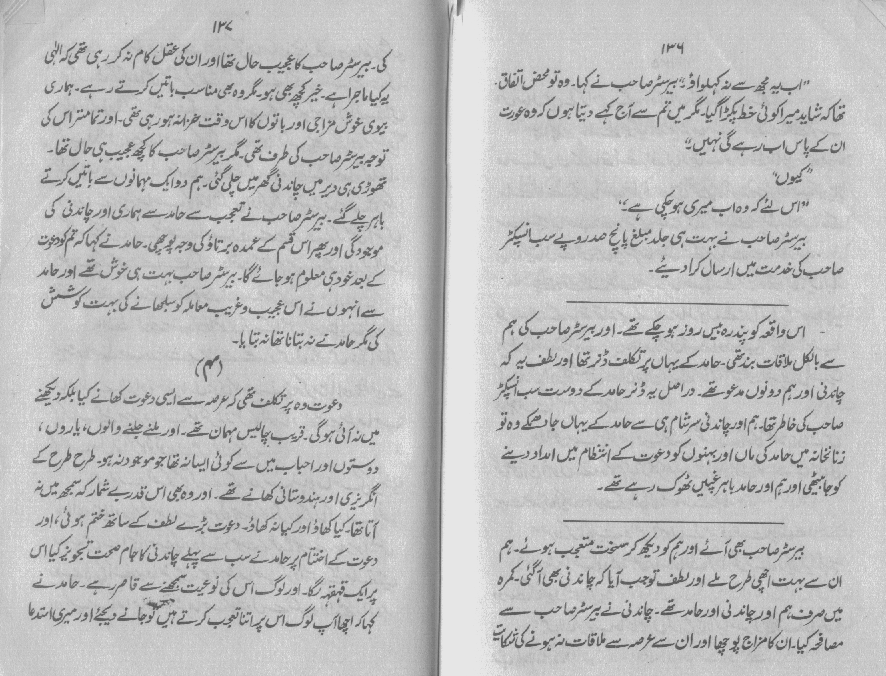 ۱۳۶
"اب یہ مجھ سے نہ کہلواؤ۔" بیرسٹر صاحب نے کہا۔ وہ تو محض اتفاق
تھا کہ شاید میرا کوئی خط پکڑا گیا۔ مگر میں تم سے آج کہے دیتا ہوں کہ وہ عورت
ان کے پاس اب رہے گی نہیں۔"
"کیوں"
"اس لئے کہ وہ اب میری ہو چکی ہے۔"
بیرسٹر صاحب نے بہت ہی جلد مبلغ پانچ صد روپے سب انسپکٹر
صاحب کی خدمت میں ارسال کرا دیئے۔
اس واقعہ کو پندرہ بیس روز ہو چکے تھے۔ اور بیرسٹر صاحب کی ہم
سے بالکل ملاقات بند تھی۔ حامد کے یہاں پر تکلف ڈنر تھا اور لطف یہ کہ
چاندنی اور ہم دونوں مدعو تھے۔ دراصل یہ ڈنر حامد کے دوست سب انسپکٹر
صاحب کی خاطر تھا۔ ہم اور چاندنی سر شام ہی سے حامد کے یہاں جا دھمکے وہ تو
زنانخانہ میں حامد کی ماں اور بہنوں کو دعوت کے انتظام میں امداد دینے
کو جا بیٹھی اور ہم اور حامد باہر گپیں ٹھوک رہے تھے۔
بیرسٹر صاحب بھی آئے اور ہم کو دیکھ کر سخت متعجب ہوئے۔ ہم
ان سے بہت اچھی طرح ملے اور لطف تو جب آیا کہ چاندنی بھی آ گئی۔ کمرہ
میں صرف ہم اور چاندنی اور حامد تھے۔ چاندنی نے بیرسٹر صاحب سے
مصافحہ کیا۔ ان کا مزاج پوچھا اور ان سے عرصہ سے ملاقات نہ ہونے کی شکایت
۱۳۷
کی۔ بیرسٹر صاحب کا عجیب حال تھا اور ان کی عقل کام نہ کر رہی تھی کہ الٰہی
یہ کیا ماجرا ہے۔ خیر کچھ بھی ہو۔ مگر وہ بھی مناسب باتیں کرتے رہے۔ ہماری
بیوی خوش مزاجی اور باتوں کا اس وقت خزانہ ہو رہی تھی۔ اور تمامتر اس کی
توجہ بیرسٹر صاحب کی طرف تھی۔ مگر بیرسٹر صاحب کا کچھ عجیب ہی حال تھا۔
تھوڑی ہی دیر میں چاندنی گھر میں چلی گئی۔ ہم دو ایک مہمانوں سے باتیں کرتے
باہر چلے گئے۔ بیرسٹر صاحب نے تعجب سے حامد سے ہماری اور چاندنی کی
موجودگی اور پھر اس قسم کے عمدہ برتاؤ کی وجہ پوچھی۔ حامد نے کہا کہ تم کو دعوت
کے بعد خود ہی معلوم ہو جائے گا۔ بیرسٹر صاحب بہت ہی خوش تھے اور حامد
سے انہوں نے اس عجیب و غریب معاملہ کو سلجھانے کی بہت کوشش
کی مگر حامد نے نہ بتانا تھا نہ بتایا۔
(۴)
دعوت وہ پر تکلف تھی کہ عرصہ سے ایسی دعوت کھانے کیا بلکہ دیکھنے
میں نہ آئی ہو گی۔ قریب چالیس مہمان تھے۔ اور ملنے جلنے والوں، یاروں،
دوستوں اور احباب میں سے کوئی ایسا نہ تھا جو موجود نہ ہو۔ طرح طرح کے
انگریزی اور ہندوستانی کھانے تھے۔ اور وہ بھی اس قدر بے شمار کہ سمجھ میں نہ
آتا تھا۔ کیا کھاؤ اور کیا نہ کھاؤ۔ دعوت بڑے لطف کے ساتھ ختم ہوئی، اور
دعوت کے اختتام پر حامد نے سب سے پہلے چاندنی کا جام صحت تجویز کیا اس
پر ایک قہقہہ لگا۔ اور لوگ اس کی نوعیت سمجھنے سے قاصر رہے۔ حامد نے
کہا کہ اچھا آپ لوگ اس پر اتنا تعجب کرتے ہیں تو جانے دیجئے اور میری استدعا